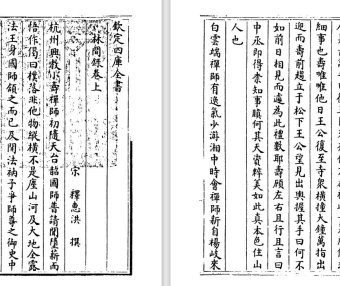 欽定四庫全書
林間錄卷上
宋 釋惠洪 撰
杭州興教小壽禪師初隨天台韶國師普請聞墮薪而
悟作偈曰撲落非他物縱橫不是塵山河及大地全露
法王身國師頷之而已及開法衲子爭師尊之御史中
細事也壽唯唯他日王公復至寺衆橫撞大鐘萬指出
迎而壽前趨立于松下王公望見出輿握其手曰何不
如前日相見而遽為此禮數耶壽顧左右且行且言曰
中丞即得柰知事嗔何其天資粹美如此真本色住山
人也
白雲端禪師有逸氣少游湘中時會禪師新自楊岐來